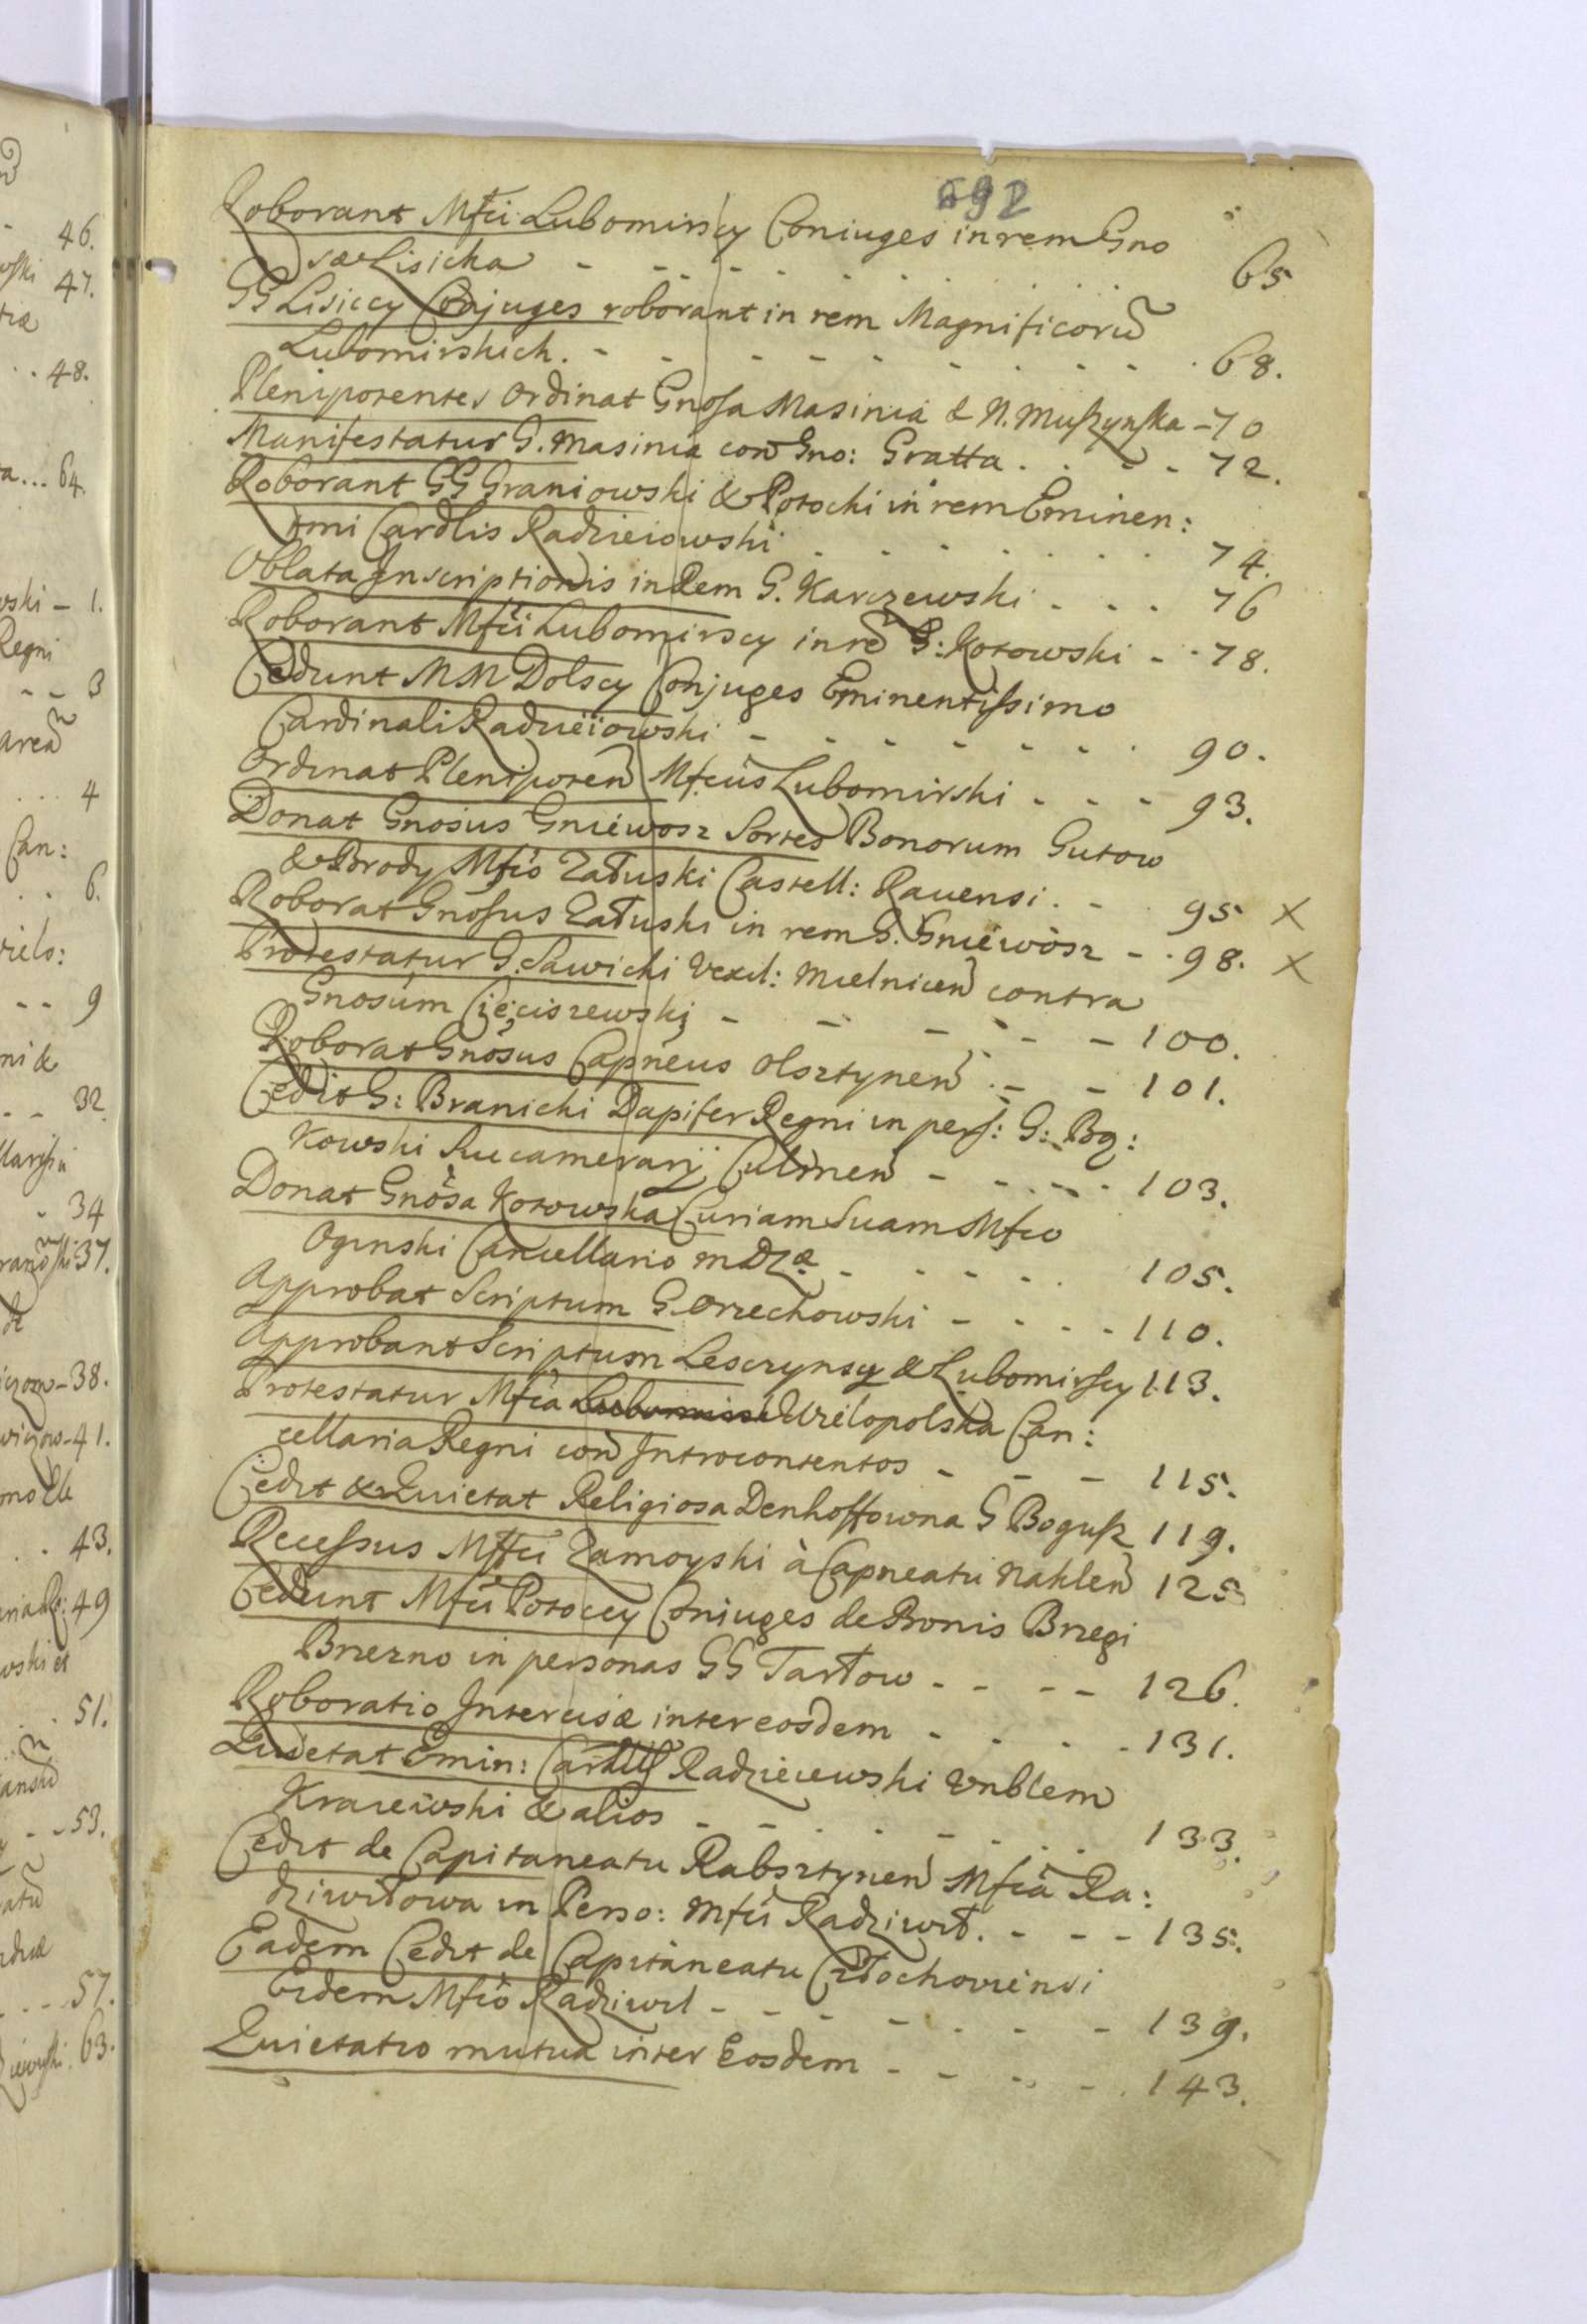 692
Roborant Mfci Lubomirscy Coniuges in rem Gno
sæ Lisicka - - - - - - - - 65
GG Lisiccy Conjuges roborant in rem Magnificorũ
Lubomirskich. - - - - - - - - 68.
Plenipotentes Ordinat Gnosa Masinia & N. Muszynska - 70
Manifestatur G. Masinia con Gno: Gratta . . - - 72.
Roborant GG Graniowski & Potocki in rem Eminen:
tmi Cardlis Radzieiowski . . . . . . . 74.
Oblata Inscriptionis in Rem G. Karczewski - - - 76
Roborant Mfci Lubomirscy in rẽ G: Kotowski - - 78.
Cedunt MM Dolscy Conjuges Eminentissimo
Cardinali Radzieiowski - - - - - - - 90.
Ordinat Plenipoten Mfcus Lubomirski - - - 93.
Donat Gnosus Gniewosz Sortes Bonorum Gutow
& Brody Mfco Załuski Castell: Ravensi. - 95 X
Roborat Gnosus Załuski in rem G. Gniewosz - . 98. X
Protestatur G. Sawicki Vexil: Mielnicen contra
Gnosum Cięciszewski - - - - - - 100.
Roborat Gnosus Capneus Olsztynen . - - 101.
Cedit G: Branicki Dapifer Regni in pers: G: Bą:
kowski Succamerarij Culmen - - . - . 103.
Donat Gnosa Kotowska Curiam Suam Mfco
Oginski Cancellario MDLæ - - - - - . 105.
Approbat Scriptum G. Orzechowski - - - - 110.
Approbant Scriptum Leszczynscy & Lubomirscy 113.
Protestatur Mfca Wielopolska Can:
cellaria Regni con Introcontentos - - - 115.
Cedit & Quietat Religiosa Denhoffowna G Bogusz 119.
Recessus Mfci Zamoyski à Capneatu Naklen 125
Cedunt Mfci Potoccy Coniuges de Bonis Brzegi
Brzezno in personas GG Tarłow - - - - 126.
Roboratio Intercisæ inter eosdem - - - - 131.
Quietat Emin: Cardlis Radzieiewski Gnblem
Kraiewski & alios - - - - - - - 133.
Cedit de Capitaneatu Rabsztynen Mfca Ra:
dziwiłowa in Perso: Mfci Radziwił. - - - 135.
Eadem Cedit de Capitaneatu Człochoviensi
Eidem Mfco Radziwil - - - - - - 139.
Quietatio mutua inter Eosdem - - - - . 143.